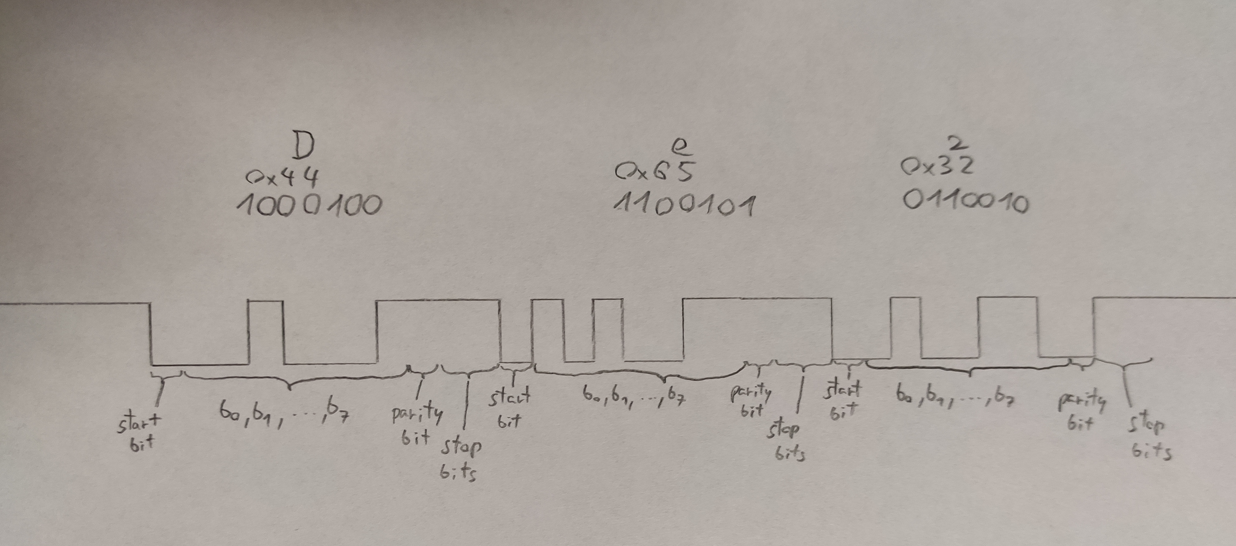 D
0x44
1000100
e
0x65
1100101
2
0x32
0110010
start
bit
b₀,b₁, ...,b₇
parity
bit
stop
bits
start
bit
b₀,b₁,...,b₇
parity
bit
stop
bits
start
bit
b₀,b₁,...,b₇
parity
bit
stop
bits